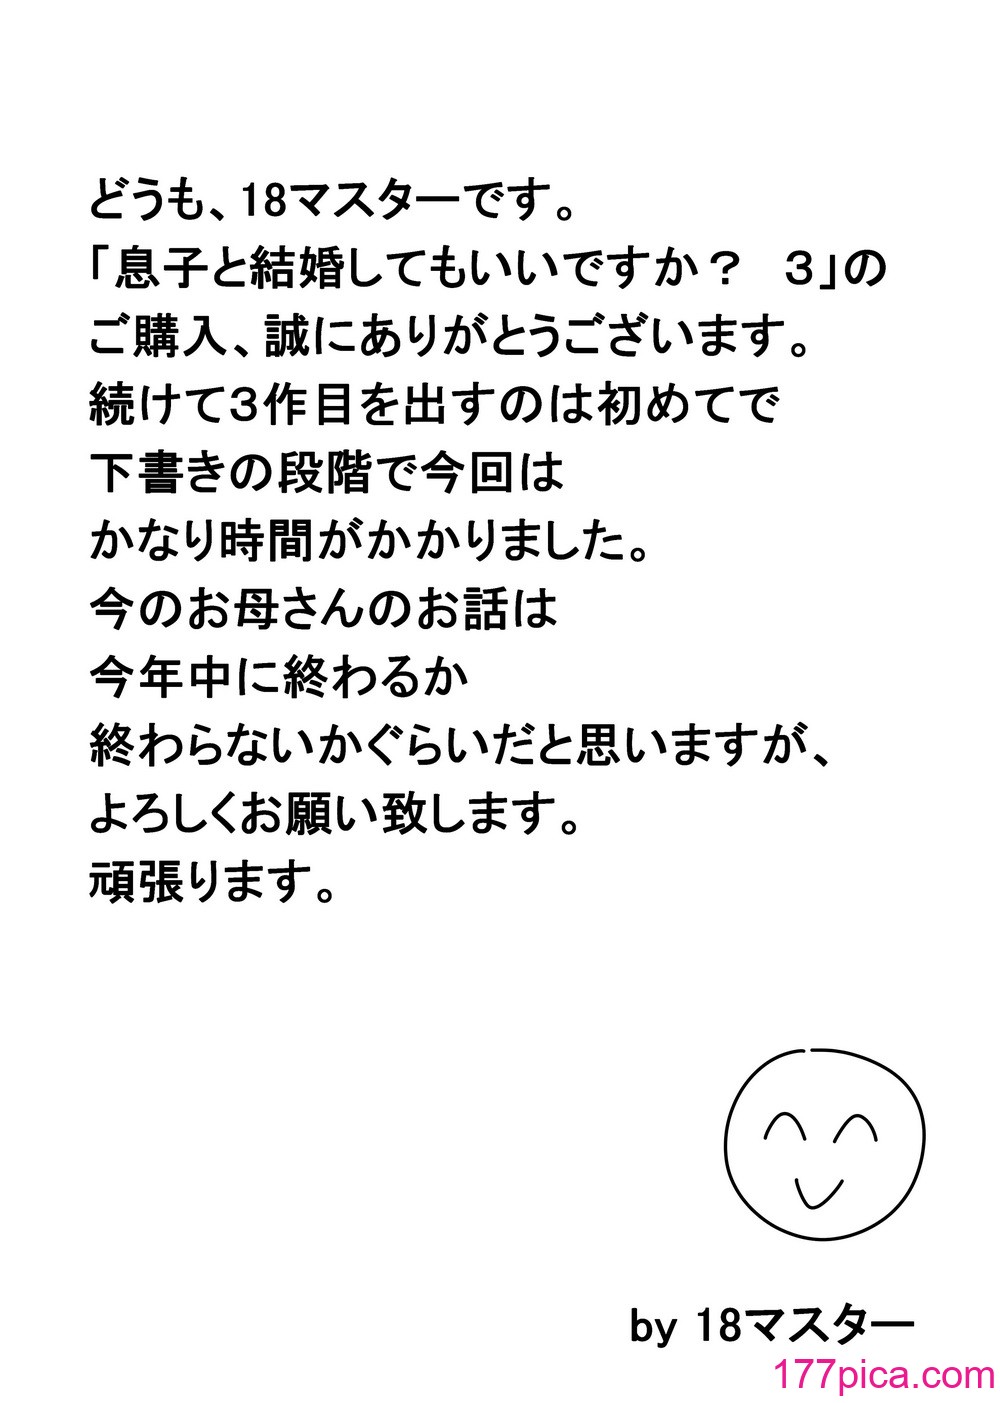 どうも、18マスターです。
「息子と結婚してもいいですか？　３」の
ご購入、誠にありがとうございます。
続けて３作目を出すのは初めてで
下書きの段階で今回は
かなり時間がかかりました。
今のお母さんのお話は
今年中に終わるか
終わらないかぐらいだと思いますが、
よろしくお願い致します。
頑張ります。
by 18マスター
177pica.com